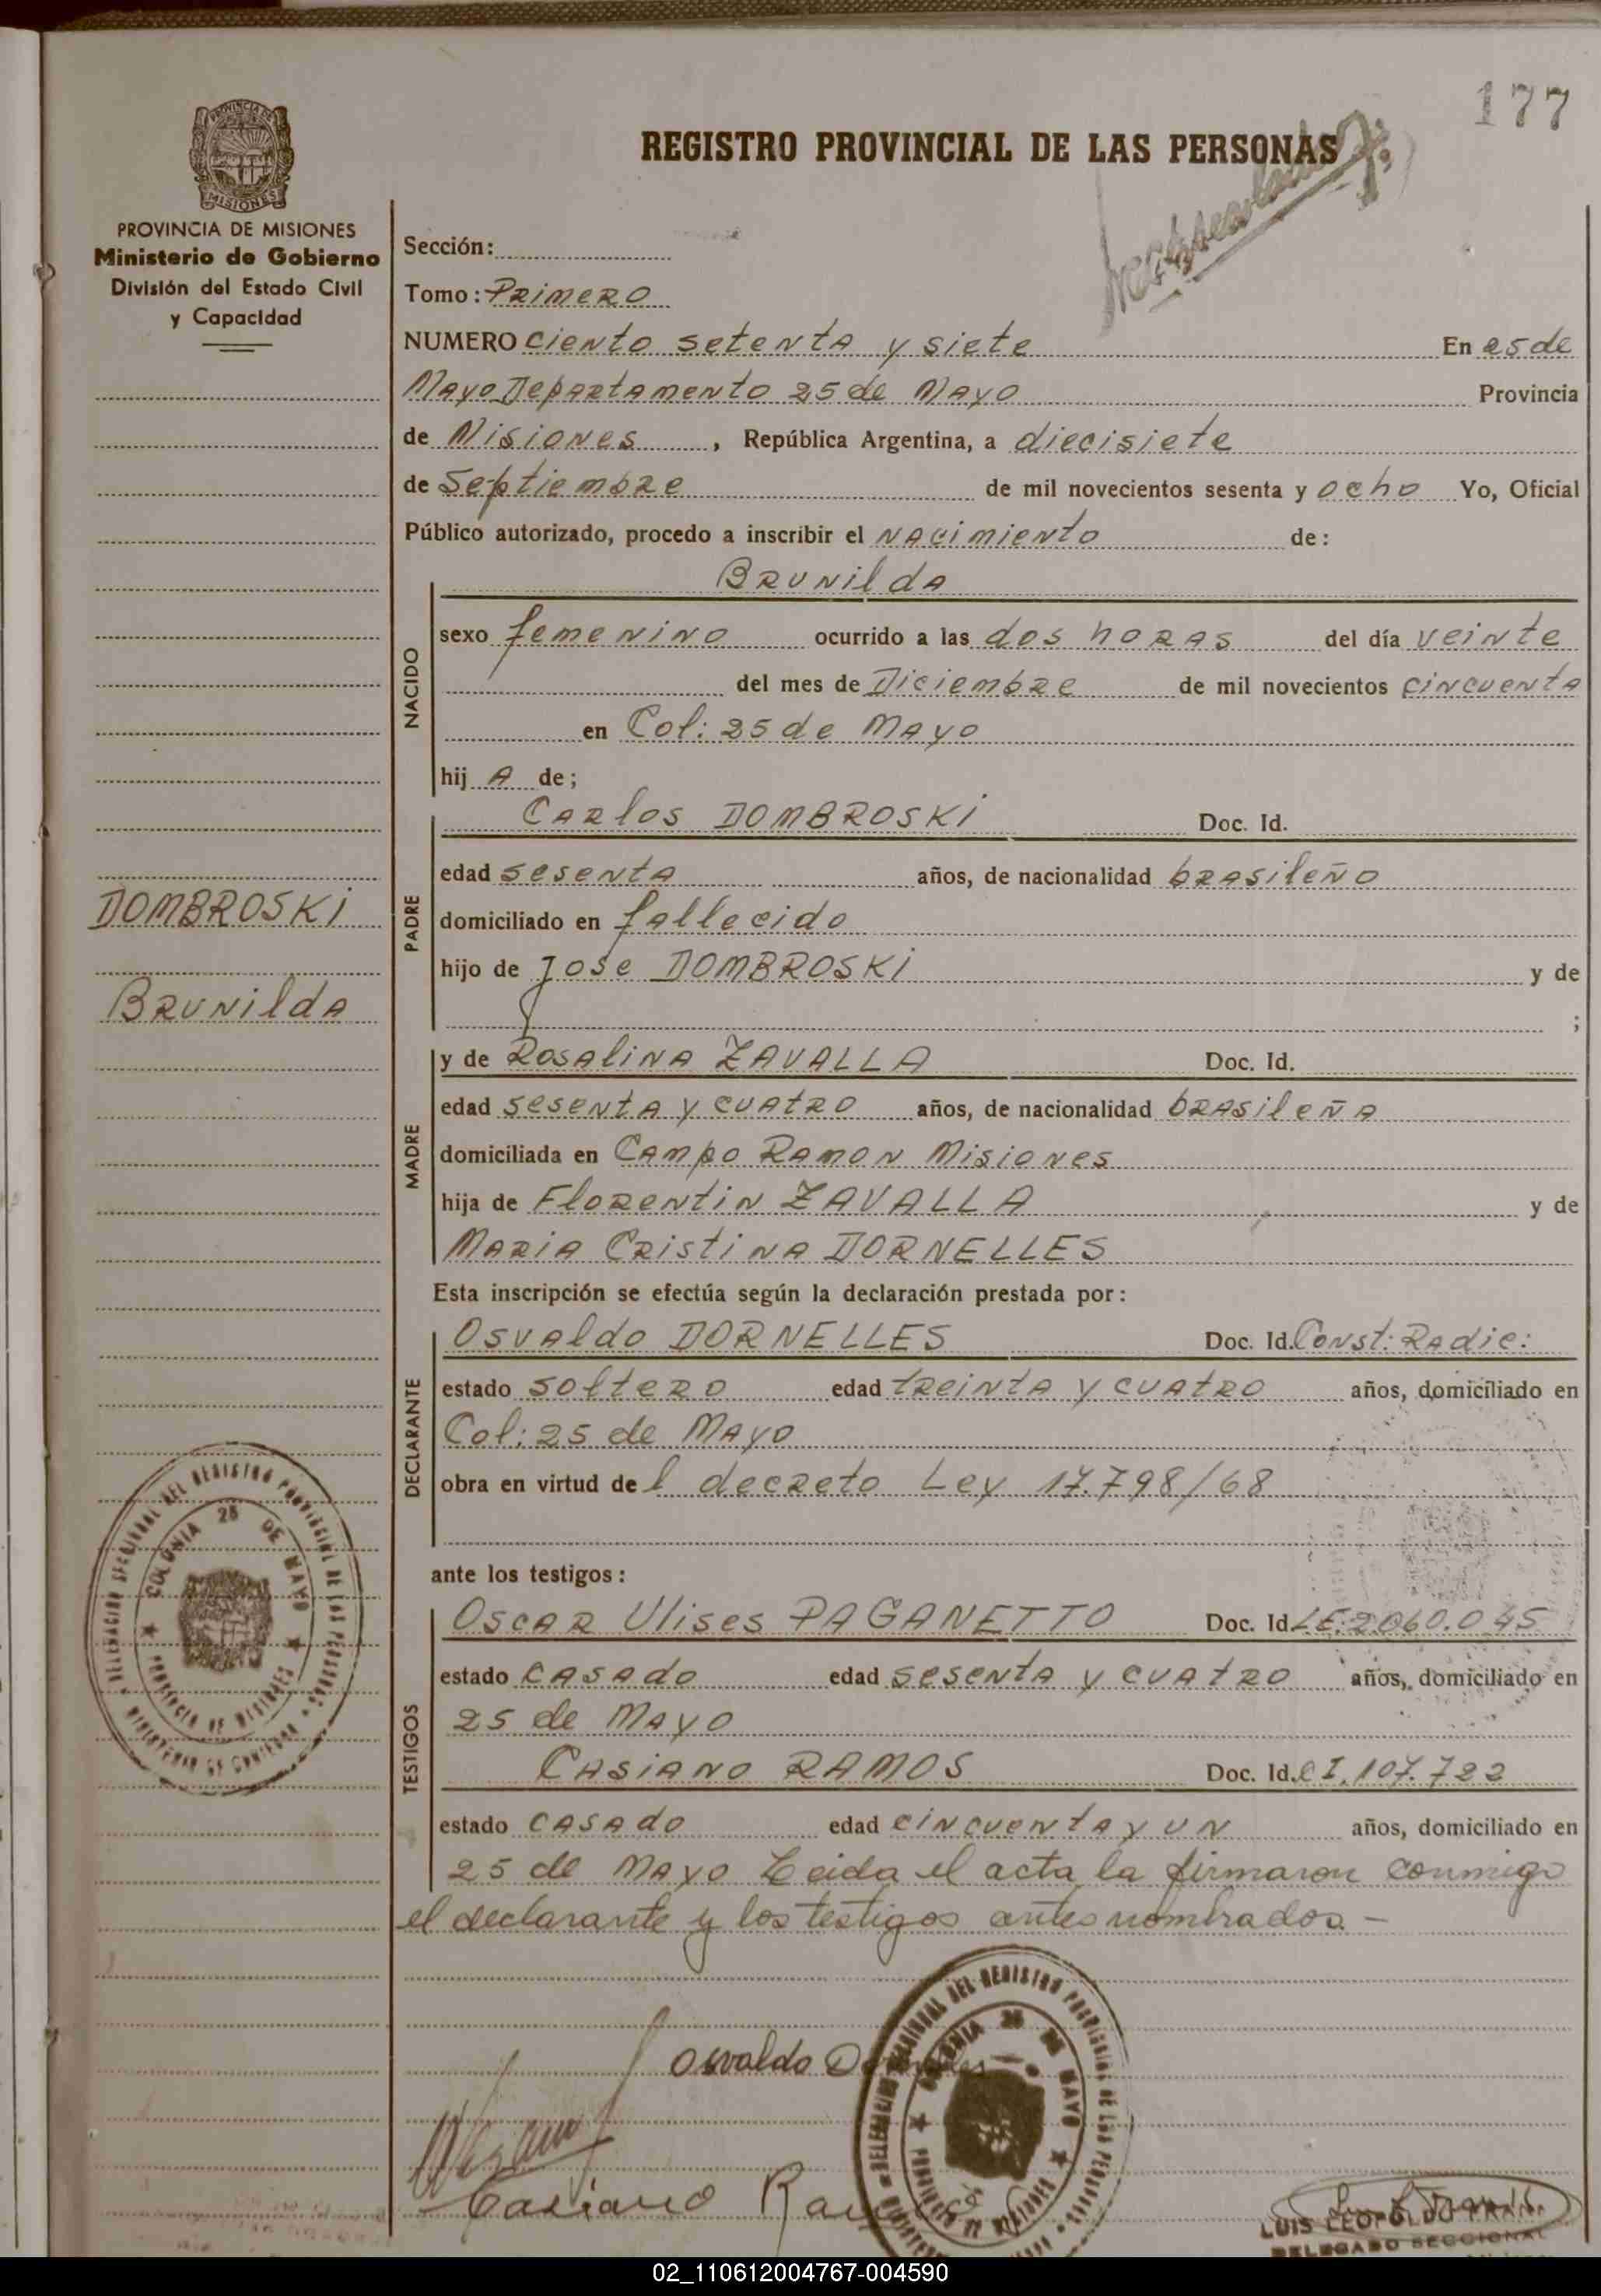 177
REGISTRO PROVINCIAL DE LAS PERSONAS
PROVINCIA DE MISIONES
MISIONES
PROVINCIA DE MISIONES
Ministerio de Gobierno
División del Estado Civil
y Capacidad
Sección:
Tomo: Primero
NUMERO ciento setenta y siete En 25 de
Mayo Departamento 25 de Mayo Provincia
de Misiones, República Argentina, a diecisiete
de Septiembre de mil novecientos sesenta y ocho Yo, Oficial
Público autorizado, procedo a inscribir el nacimiento de:
Brunilda
NACIDO
sexo femenino ocurrido a las dos horas del día veinte
del mes de Diciembre de mil novecientos cincuenta
en Col: 25 de Mayo
hij a de;
Carlos DOMBROSKI Doc. Id.
PADRE
edad sesenta años, de nacionalidad brasileño
domiciliado en fallecido
hijo de Jose DOMBROSKI y de
;
DOMBROSKI
Brunilda
y de Rosalina ZAVALLA Doc. Id.
MADRE
edad sesenta y cuatro años, de nacionalidad brasileña
domiciliada en Campo Ramon Misiones
hija de Florentin ZAVALLA y de
Maria Cristina DORNELLES
Esta inscripción se efectúa según la declaración prestada por:
Osvaldo DORNELLES Doc. Id. Const: Radic:
DECLARANTE
estado soltero edad treinta y cuatro años, domiciliado en
Col: 25 de Mayo
obra en virtud del decreto Ley 17.798/68
ante los testigos:
Oscar Ulises PAGANETTO Doc. Id. LE:2060.045
TESTIGOS
estado casado edad sesenta y cuatro años, domiciliado en
25 de Mayo
Casiano RAMOS Doc. Id. CI. 107.722
estado casado edad cincuenta y un años, domiciliado en
25 de Mayo Leida el acta la firmaron conmigo
el declarante y los testigos antes nombrados.-
DELEGACION SECCIONAL DEL REGISTRO PROVINCIAL DE LAS PERSONAS
COLONIA 25 DE MAYO
PROVINCIA DE MISIONES
MINISTERIO DE GOBIERNO
Osvaldo Dornelles
DELEGACION SECCIONAL DEL REGISTRO PROVINCIAL DE LAS PERSONAS
COLONIA 25 DE MAYO
PROVINCIA DE MISIONES
Casiano Ramos
LUIS LEOPOLDO
DELEGADO SECCIONAL
02_110612004767-004590